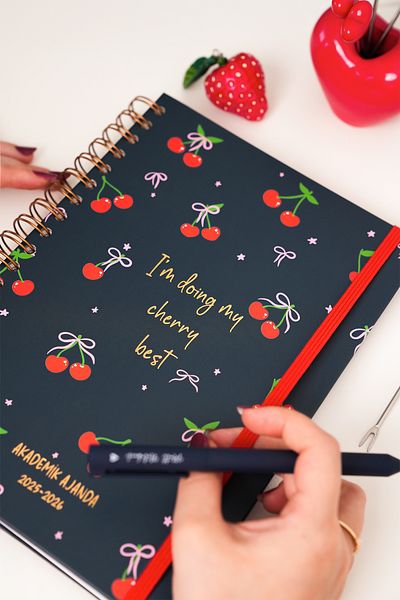 I'm doing my
cherry
best
AKADEMİK AJANDA
2025-2026